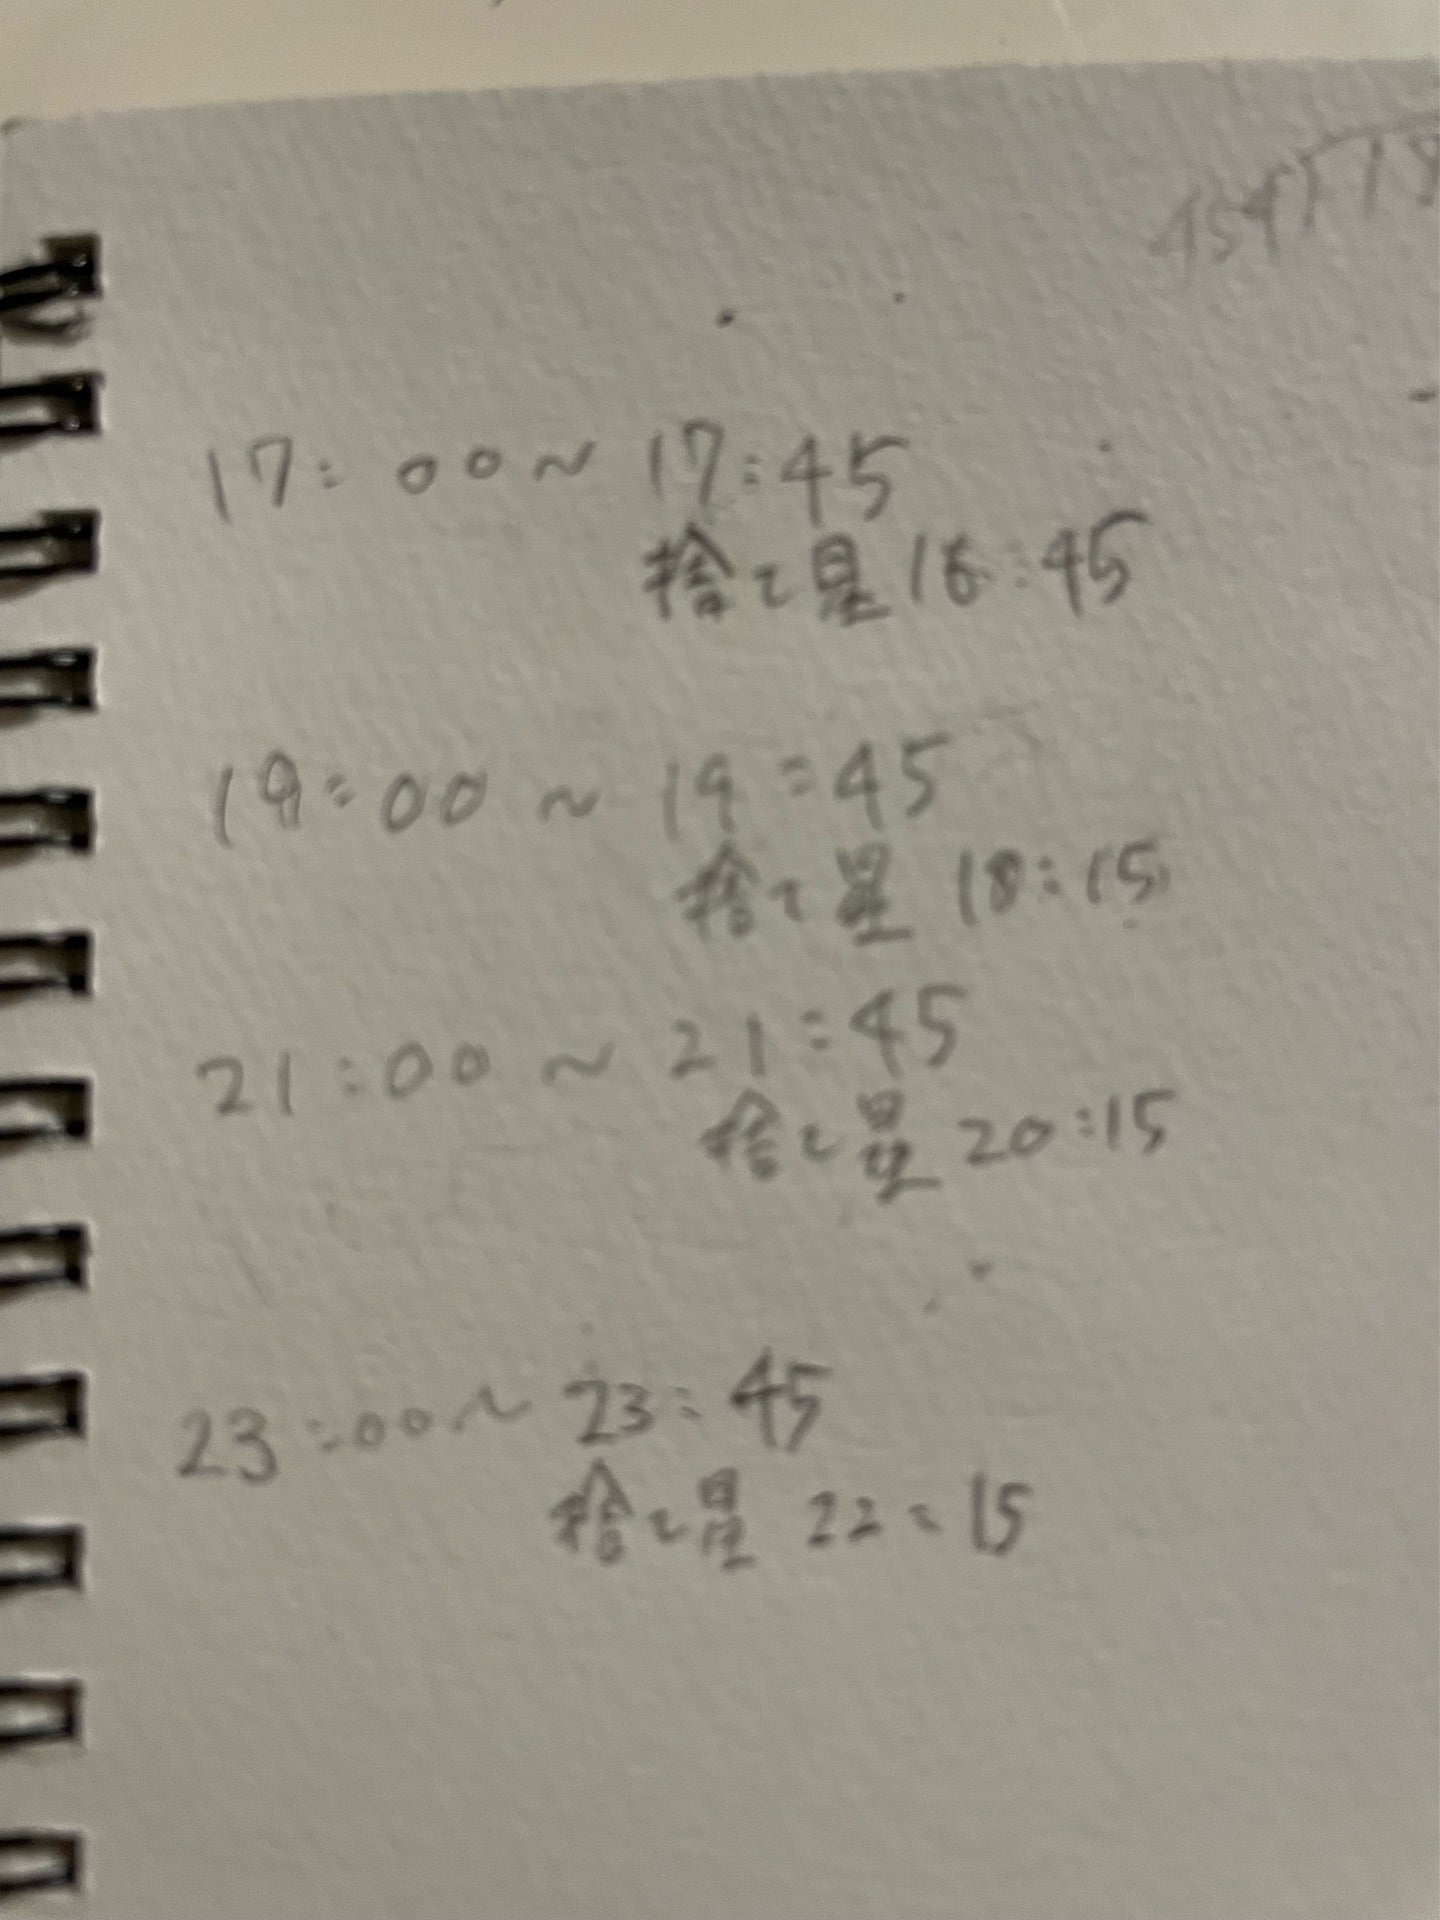 17:00~17:45
捨て星 16:45
19:00~19:45
捨て星 18:15
21:00~21:45
捨て星 20:15
23:00~23:45
捨て星 22:15